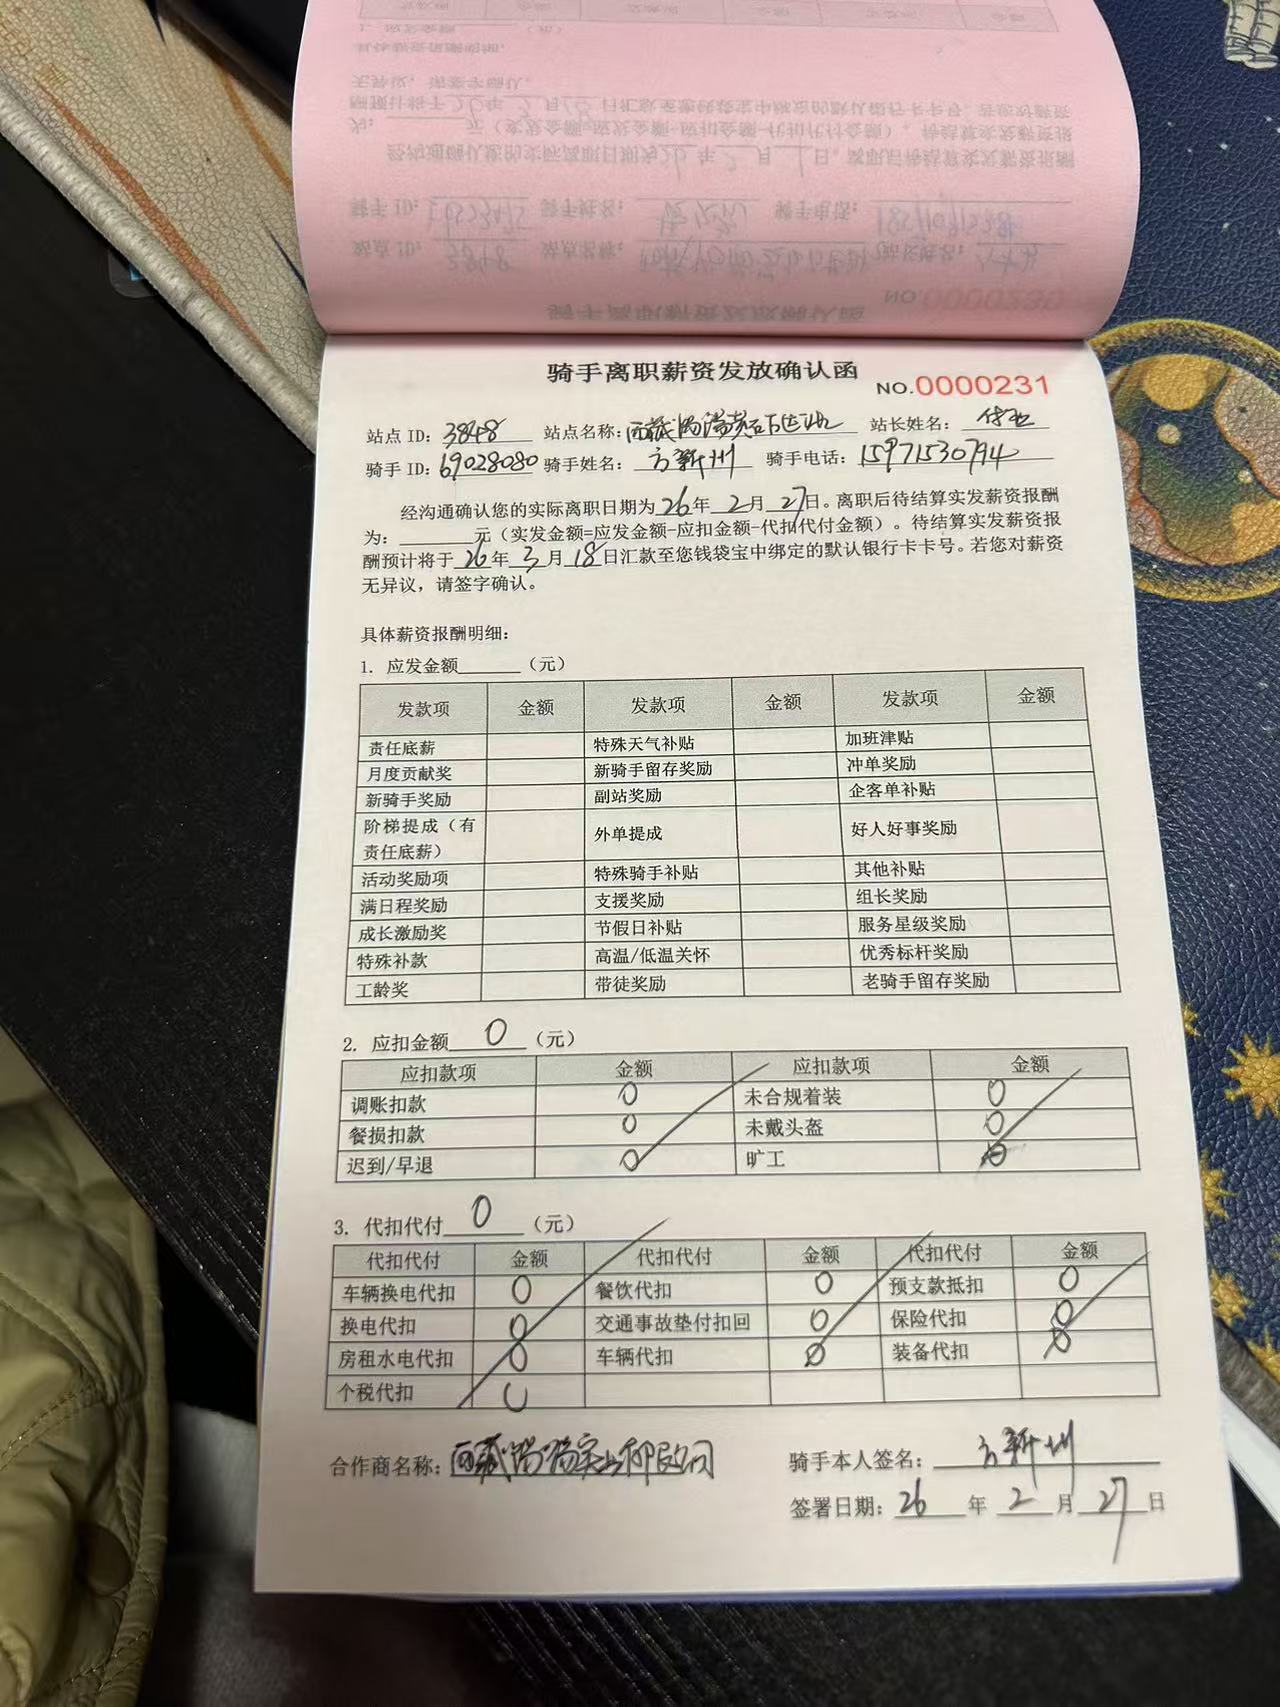 骑手离职薪资发放确认函 NO.0000231
站点 ID: 3848 站点名称: 西藏 站长姓名:
骑手 ID: 69028080 骑手姓名: 方新州 骑手电话: 15971530794
经沟通确认您的实际离职日期为 26 年 2 月 27 日。离职后待结算实发薪资报酬
为: 元（实发金额=应发金额-应扣金额-代扣代付金额）。待结算实发薪资报
酬预计将于 26 年 3 月 18 日汇款至您钱袋宝中绑定的默认银行卡卡号。若您对薪资
无异议，请签字确认。
具体薪资报酬明细：
1. 应发金额 （元）
发款项 金额 发款项 金额 发款项 金额
责任底薪 特殊天气补贴 加班津贴
月度贡献奖 新骑手留存奖励 冲单奖励
新骑手奖励 副站奖励 企客单补贴
阶梯提成（有 外单提成 好人好事奖励
责任底薪）
活动奖励项 特殊骑手补贴 其他补贴
满日程奖励 支援奖励 组长奖励
成长激励奖 节假日补贴 服务星级奖励
特殊补款 高温/低温关怀 优秀标杆奖励
工龄奖 带徒奖励 老骑手留存奖励
2. 应扣金额 0 （元）
应扣款项 金额 应扣款项 金额
调账扣款 0 未合规着装 0
餐损扣款 0 未戴头盔 0
迟到/早退 0 旷工 0
3. 代扣代付 0 （元）
代扣代付 金额 代扣代付 金额 代扣代付 金额
车辆换电代扣 0 餐饮代扣 0 预支款抵扣 0
换电代扣 0 交通事故垫付扣回 0 保险代扣 0
房租水电代扣 0 车辆代扣 0 装备代扣 0
个税代扣 0
合作商名称: 西藏 有限公司 骑手本人签名: 方新州
签署日期: 26 年 2 月 27 日